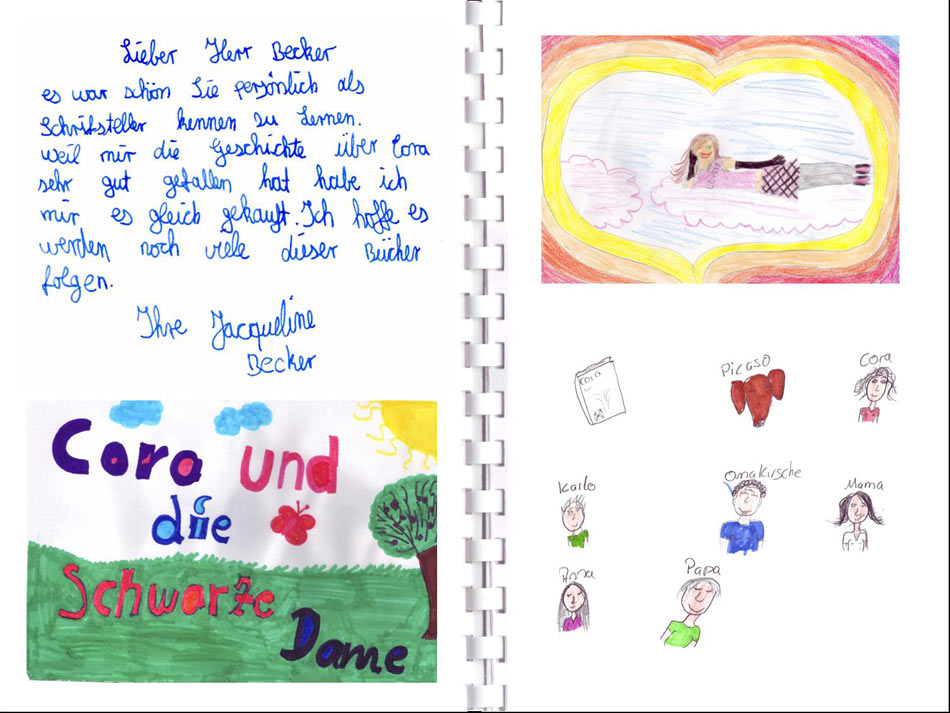 Lieber Herr Becker
es war schön Sie persönlich als
Schriftsteller kennen zu lernen.
weil mir die Geschichte über Cora
sehr gut gefallen hat habe ich
mir es gleich gekauft. Ich hoffe es
werden noch viele dieser Bücher
folgen.
Ihre Jacqueline
Becker
Cora und
die
Schwarze
Dame
CORA
Picaso
Cora
Karlo
Oma Kirsche
Mama
Anna
Papa